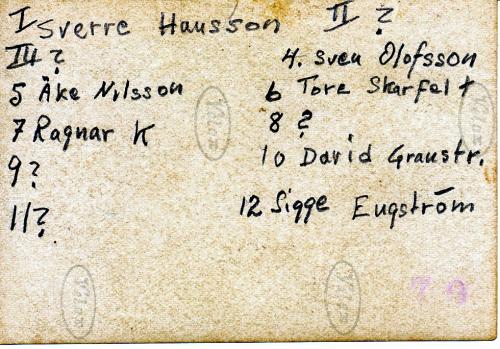 I Sverre Hansson II ?
III ? 4. Sven Olofsson
5 Åke Nilsson 6 Tore Skarfelt
7 Ragnar K 8 ?
9 ? 10 David Granstr.
11 ? 12 Sigge Engström
Velox
Velox
Velox
Velox
79